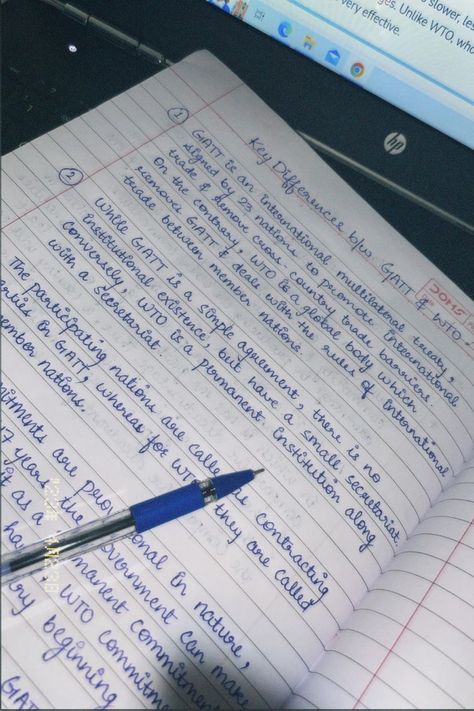 slower, les
ges. Unlike WTO, who
very effective.
hp
Key Differences b/w GATT & WTO
① GATT is an international multilateral treaty,
signed by 23 nations to promote international
trade & remove cross country trade barriers.
On the contrary, WTO is a global body which
removes GATT & deals with the rules of international
trade between member nations.
② While GATT is a simple agreement, there is no
institutional existence, but have a small secretariat.
Conversely, WTO is a permanent Institution along
with a Secretariat.
The participating nations are called as contracting
arties in GATT, whereas for WTO, they are called
ember nations.
itments are provisional in nature,
47 years the government can make
it as a permanent commitment
WTO commitmen
ry beginning
GAT